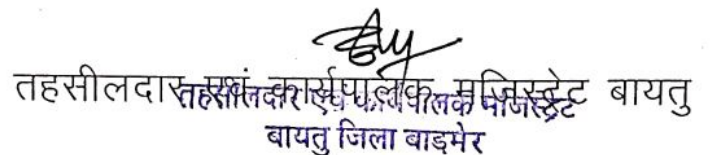 तहसीलदार एवं कार्यपालक मजिस्ट्रेट बायतु
तहसीलदार एवं कार्यपालक मजिस्ट्रेट
बायतु जिला बाड़मेर